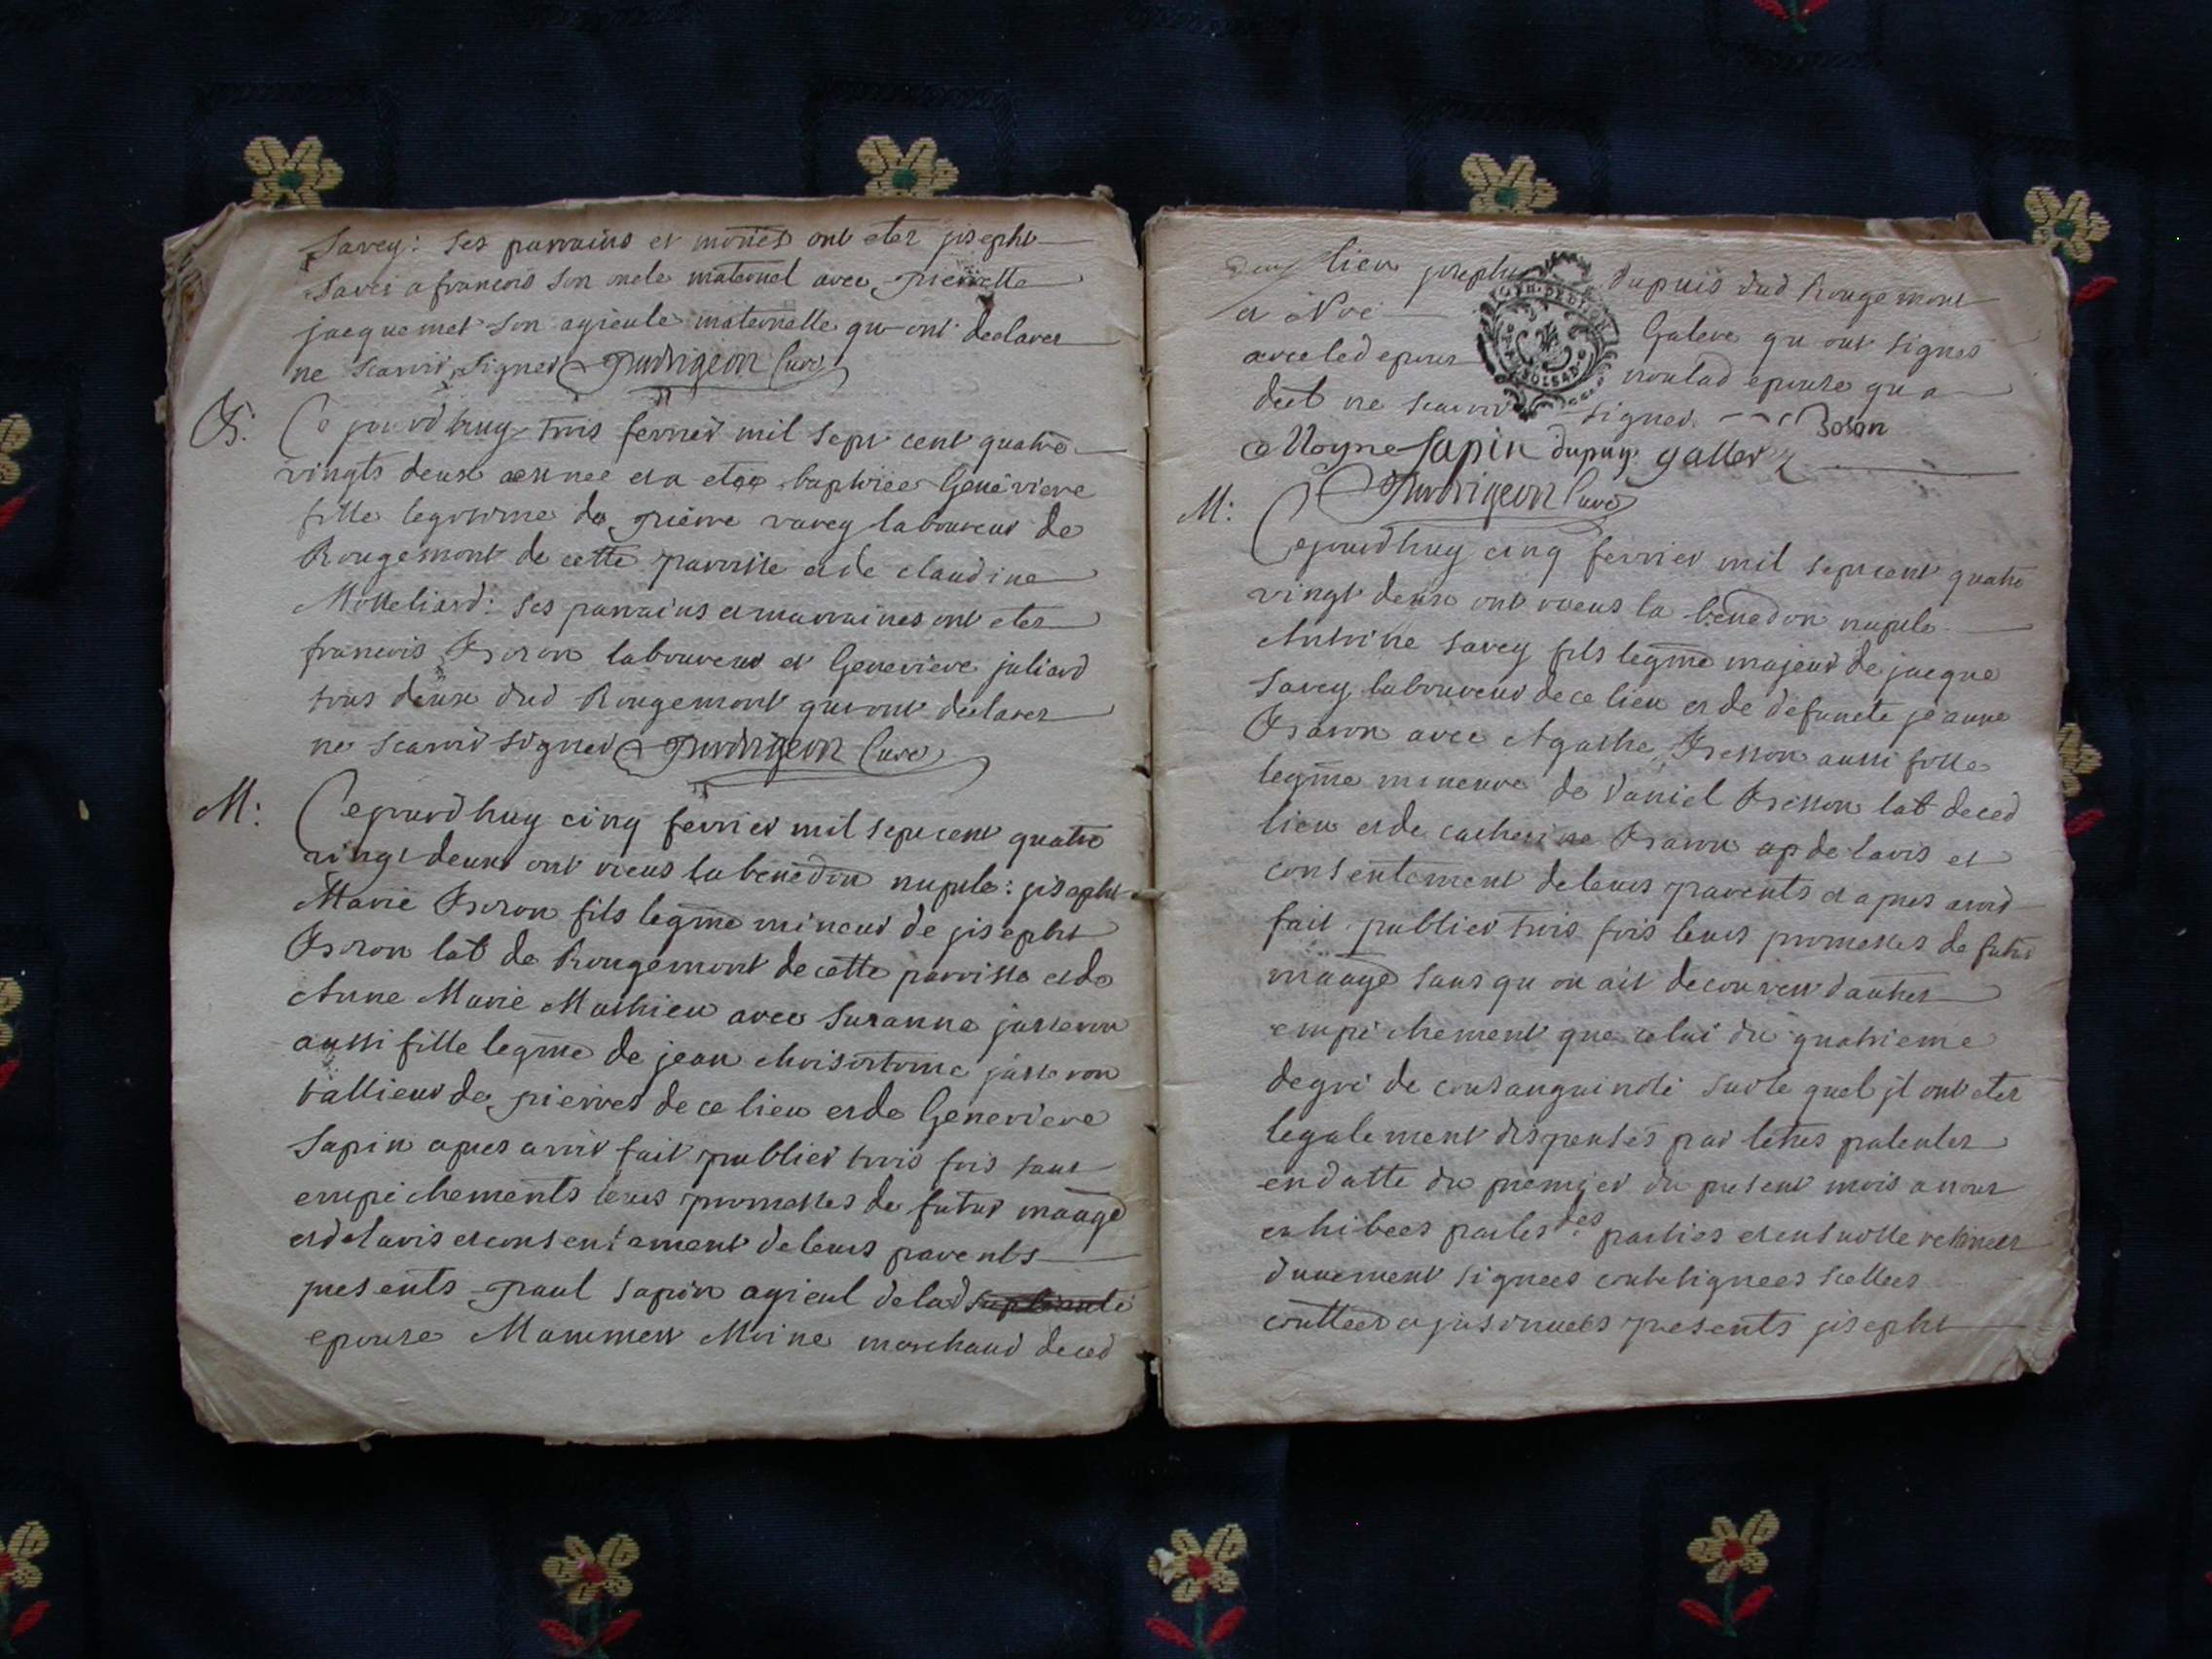 Savey: ses parrains et mories ont eter joseph
Savei a francois son oncle maternel avec pierrette
jacquemet son ayieule maternelle qu ont declarer
ne scavoir signer curé
B: Ce jourd huy trois fevrier mil sept cent quatre
vingts deux est nee et a etee baptisee Genevieve
fille legitime de pierre varey laboureur de
Rougemont de cette parroisse et de claudine
Molleliard: ses parrains et marraines ont eter
francois Boron laboureur et Genevieve juliard
tous deux dud Rougemont qui ont declarer
ne scavoir signer curé
M: Cejourd huy cinq fevrier mil sept cent quatre
vingt deux ont receus la benedon nuptle: joseph
Marie Boron fils legme mineur de joseph
Boron lab de Rougemont de cette parroisse et de
Anne Marie Mathieu avec Suzanne jasseron
aussi fille legme de jean chrisostome jasseron
tallieur de pierres de ce lieu et de Genevieve
Sapin apres avoir fait publier trois fois sans
empêchements leurs promesses de futur maage
et de lavis et consentement de leurs parents
presents paul sapin ayieul de lad
epouse Mammert Moine marchand de ced
lieu joseph dupuis dud Rougemont
et Galere qu ont signes
avec led epoux non lad epouse qu a
dect ne scavoir signer. Boron
Moyne Sapin dupuy galler
curé
M: Cejourd huy cinq fevrier mil sept cent quatre
vingt deux ont receus la benedon nuptle
Antoine Savey fils legme majeur de jacque
Savey laboureur de ce lieu et de defuncte jeanne
Baron avec Agathe Besson aussi fille
legme mineure de Daniel Besson lab de ced
lieu et de catherine Baron ap de lavis et
consentement de leurs parents et apres avoir
fait publier trois fois leurs promesses de futur
maage sans qu on ait decouvert dautres
empêchement que celui du quatrieme
degré de consanguinité sur le quel jl ont eter
legalement dispensés par lettres patentes
en datte du premier du present mois a nous
exhibees par les des parties et ensuitte retirees
duuement signees contresignees scellees
presents joseph